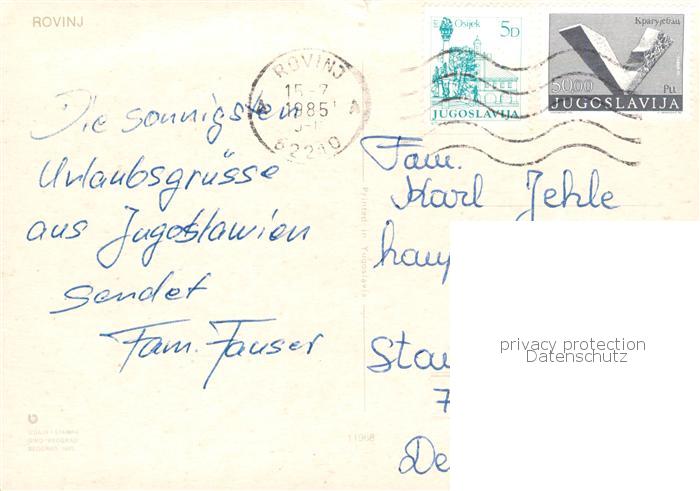 ROVINJ
Osijek 5D
JUGOSLAVIJA
Крагујевац
5000
JUGOSLAVIJA
ROVINJ
15-7
1985
A
52210
Die sonnigsten
Urlaubsgrüsse
aus Jugoslawien
sendet
Fam. Fauser
Fam.
Karl Jehle
hau
Sta
7
De
Printed in Yugoslavia
privacy protection
Datenschutz
11968